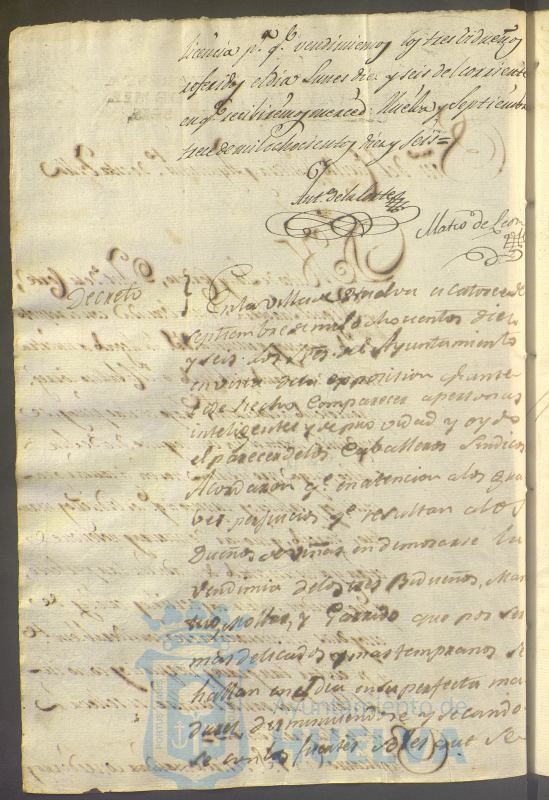 licencia p.ª q.e vendimiemos los tres bidueños
referidos el dia Lunes diez y seis del corriente
en q.e recibirémos merced. Huelva y Septiembre
trece de mil ochocientos diez y seis=
Ant.º de la Corte
Mateo de Leon
Decreto
En la villa de Huelva a catorce de
Septiembre de mil ochocientos diez
y seis los Sres. del Ayuntamiento
en vista de la exposicion q.e antes
de hecho comparecer a personas
inteligentes y de providad y oydo
el parecer de los Caballeros Sindicos
Acordaron q.e en atencion a los gra
ves perjuicios q.e resultan a los
Dueños de viñas en demorarse la
vendimia de los tres Bidueños, Man
tuo, Mollar, y Garrido que por ser
mas delicados y mas tempranos se
hallan en el dia en su perfecta ma
durez, disminuiendose y secando
se con los fuertes Soles que se
Ayuntamiento de
HUELVA
PORTUS MARIS